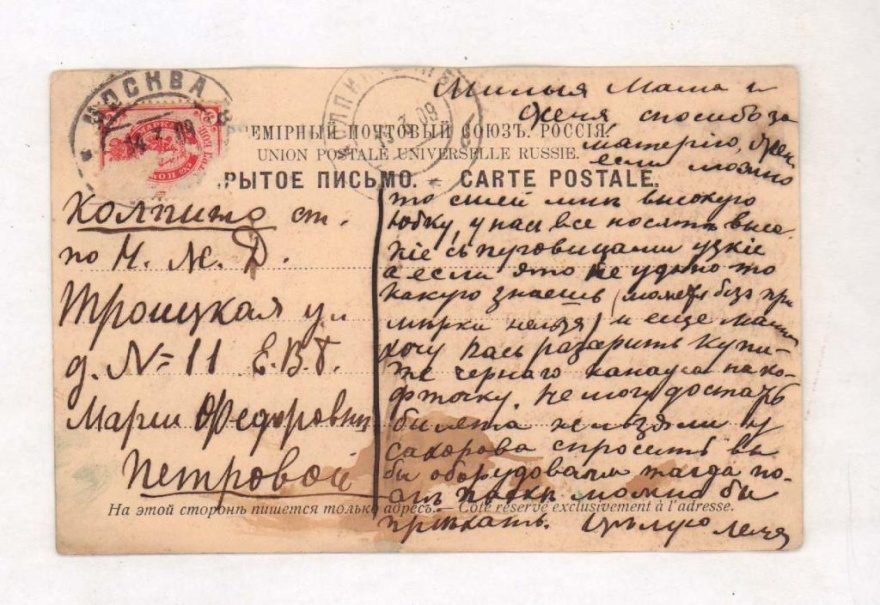 МОСКВА
14.3.09
КОЛПИНО
3.09
ЕМІРНЫЙ ПОЧТОВЫЙ СОЮЗЪ. РОССІЯ.
UNION POSTALE UNIVERSELLE RUSSIE.
РЫТОЕ ПИСЬМО. — CARTE POSTALE.
Колпино ст.
по Н. Ж. Д.
Троицкая ул
д. № 11 Е. В. Б.
Марии Федоровны
Петровой
Милыя Мама и
Женя спасибо за
матерію, Жен.
если можно
то сшей мнѣ высокую
юбку, у нас все носятъ высо
кіе съ пуговицами узкіе
а если это не удбно то
какую знаешь (может безъ при
мѣрки нельзя) и еще мама
хочу Васъ разарить купи-
те чернаго канауса на ко-
фточку. Не могу достать
билета нельзя ли у
Сахорова спросить вы
бы оборудовали тагда по-
слѣ пасхи можно бы
пріѣхать. Цѣлую Леля
На этой сторонѣ пишется только адресъ.— Côté réservé exclusivement à l'adresse.